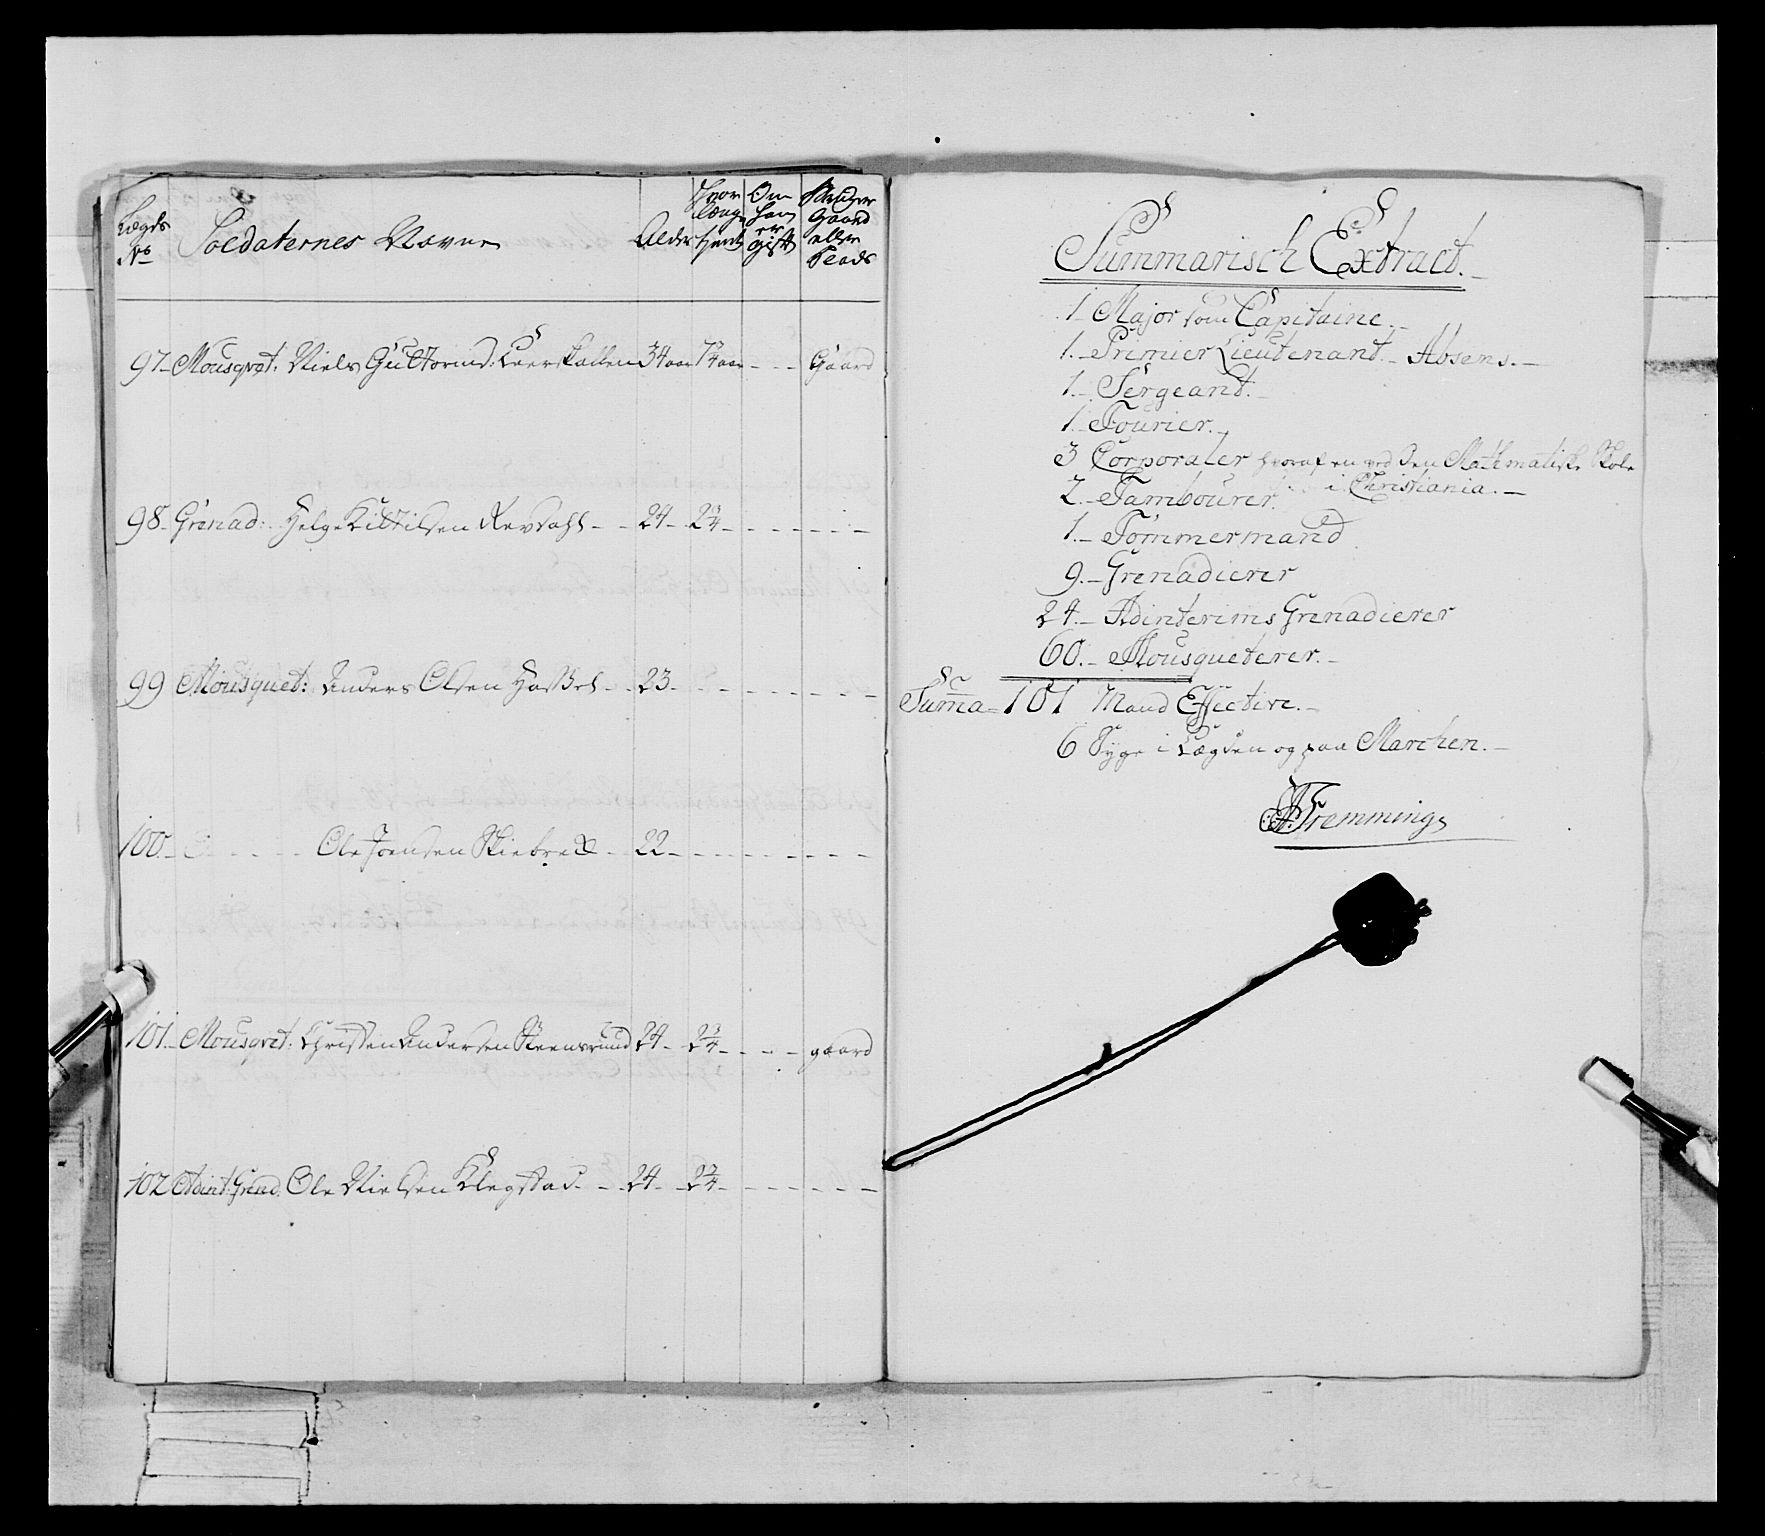 Lægds No Soldaternes Navne Alder Hvor længe tient Om han er gift Bruger Gaard eller Plads
97 Mousqvet: Niels Guttormd: Leerskallen 34 aar 7 3/4 aar Gaard
98 Grenad: Helge Kittilsen Revdahl 24 2 3/4
99 Mousquet: Anders Olsen Hassel 23
100 Ole Joensen Skiebrek 22
101 Mousqvet: Christen Andersen Steensrund 24 2 3/4 gaard
102 Adint: Grenad: Ole Nielsen Klegstad 24 2 3/4
Summarisch Extract.
1 Major som Capitaine.
1. Premier Lieutenant. Absens.
1. Sergeant.
1. Fourier.
3 Corporaler hvoraf en ved den Mathematiske Skole
i Christiania.
2. Tambourer.
1. Tömmermand
9. Grenadierer
24. Adinterims Grenadierer
60. Mousqueterer.
Summa 101 Mand Effective.
6 Syge i Lægden og paa Marchen.
Fremming